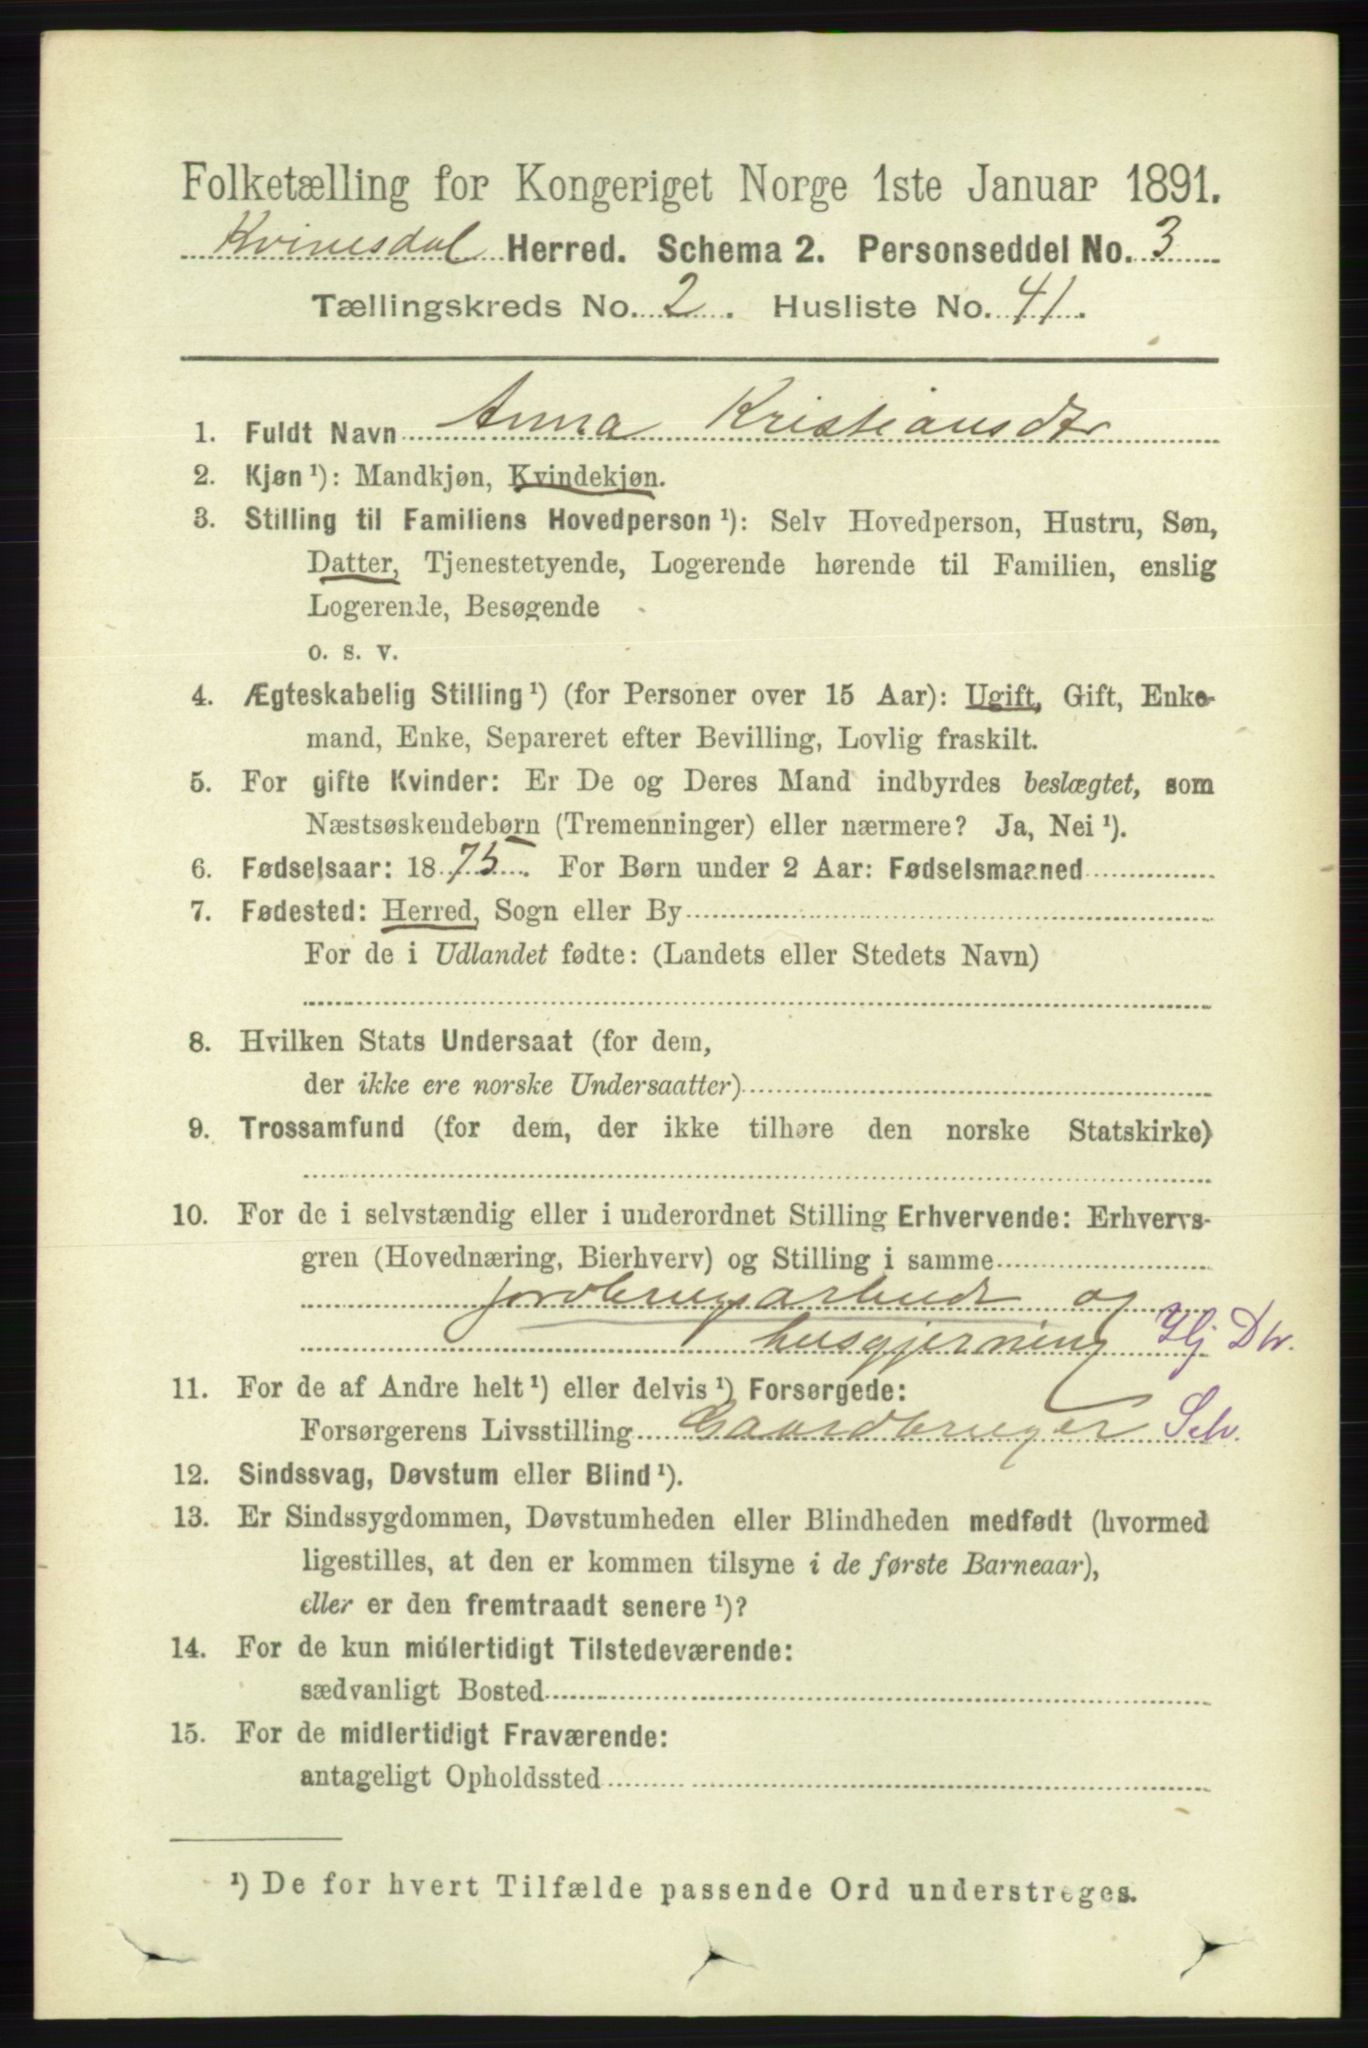 Folketælling for Kongeriget Norge 1ste Januar 1891.
Kvinesdal Herred. Schema 2. Personseddel No. 3
Tællingskreds No. 2. Husliste No. 41.
1. Fuldt Navn Anna Kristiansdtr
2. Kjøn¹): Mandkjøn, Kvindekjøn.
3. Stilling til Familiens Hovedperson¹): Selv Hovedperson, Hustru, Søn,
Datter, Tjenestetyende, Logerende hørende til Familien, enslig
Logerende, Besøgende
o. s. v.
4. Ægteskabelig Stilling¹) (for Personer over 15 Aar): Ugift, Gift, Enke-
mand, Enke, Separeret efter Bevilling, Lovlig fraskilt.
5. For gifte Kvinder: Er De og Deres Mand indbyrdes beslægtet, som
Næstsøskendebørn (Tremenninger) eller nærmere? Ja, Nei¹).
6. Fødselsaar: 1875. For Børn under 2 Aar: Fødselsmaaned
7. Fødested: Herred, Sogn eller By
For de i Udlandet fødte: (Landets eller Stedets Navn)
8. Hvilken Stats Undersaat (for dem,
der ikke ere norske Undersaatter)
9. Trossamfund (for dem, der ikke tilhøre den norske Statskirke)
10. For de i selvstændig eller i underordnet Stilling Erhvervende: Erhvervs-
gren (Hovednæring, Bierhverv) og Stilling i samme
jordbrugsarbeide og
husgjerning Hj Dtr.
11. For de af Andre helt¹) eller delvis¹) Forsørgede:
Forsørgerens Livsstilling Gaardbruger Selv.
12. Sindssvag, Døvstum eller Blind¹).
13. Er Sindssygdommen, Døvstumheden eller Blindheden medfødt (hvormed
ligestilles, at den er kommen tilsyne i de første Barneaar),
eller er den fremtraadt senere¹)?
14. For de kun midlertidigt Tilstedeværende:
sædvanligt Bosted
15. For de midlertidigt Fraværende:
antageligt Opholdssted
¹) De for hvert Tilfælde passende Ord understreges.